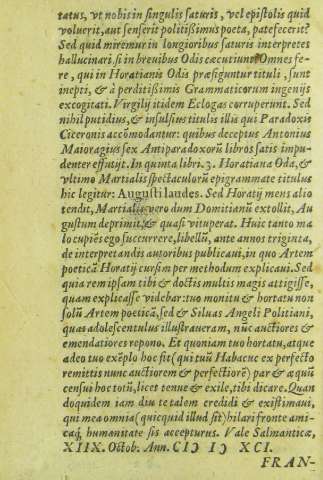 tatus, vt nobis in singulis saturis, vel epistolis quid
voluerit, aut senserit politißimus poeta, patefecerit?
Sed quid miremur in longioribus saturis interpretes
hallucinari, si in breuibus Odis cæcutiunt? Omnes fe-
re, qui in Horatianis Odis præfiguntur tituli, sunt
inepti, & à perditißimis Grammaticorum ingenijs
excogitati. Virgilij itidem Eclogas corruperunt. Sed
nihil putidius, & insulsius titulis illis qui Paradoxis
Ciceronis accõmodantur: quibus deceptus Antonius
Maioragius sex Antiparadoxorũ libros satis impu-
denter effutijt. In quinta libri. 3. Horatiana Oda, &
vltimo Martialis spectaculorũ epigrammate titulus
hic legitur: Augusti laudes. Sed Horatij mens alio
tendit, Martialis vero dum Domitianũ extollit, Au
gustum deprimit, & quasi vituperat. Huic tanto ma
lo cupiẽs ego succurrere, libellũ, ante annos triginta,
de interpretandis autoribus publicaui, in quo Artem
poeticã Horatij cursim per methodum explicaui. Sed
quia rem ipsam tibi & doctis multis magis attigisse,
quam explicasse videbar: tuo monitu & hortatu non
solũ Artem poeticã, sed & Siluas Angeli Politiani,
quas adolescentulus illustraueram, nũc auctiores &
emendatiores repono. Et quoniam tuo hortatu, atque
adeo tuo exẽplo hoc fit (qui tuũ Habacuc ex perfecto
remittis nunc auctiorem & perfectiorẽ) par & æquũ
censui hoc totũ, licet tenue & exile, tibi dicare. Quan
doquidem iam diu te talem credidi & existimaui,
qui mea omnia (quicquid illud sit) hilari fronte ami-
caq́; humanitate sis accepturus. Vale Salmanticæ,
XIIX. Octob. Ann. CIↃ IↃ XCI.
FRAN-